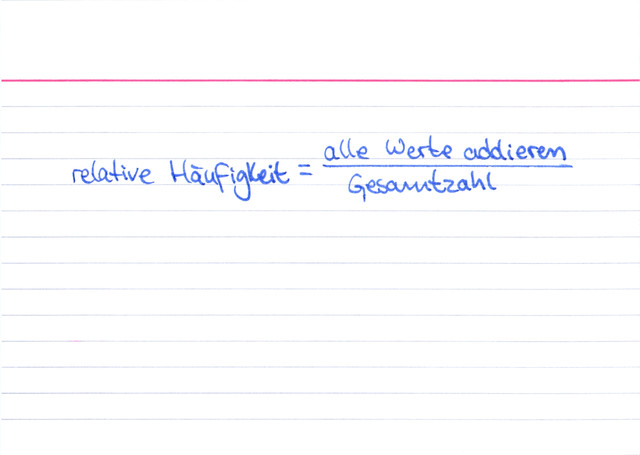 relative Häufigkeit = alle Werte addieren
Gesamtzahl